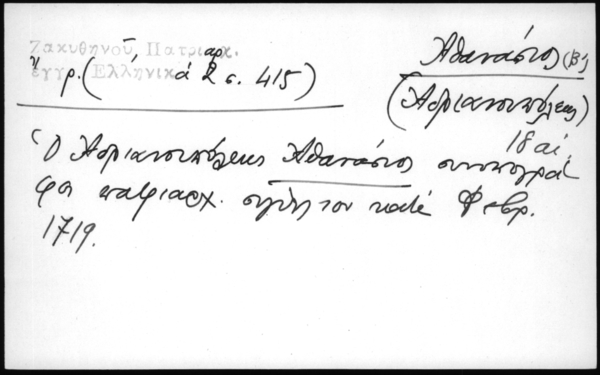 Ζακυθηνοῦ, Πατριαρχ.
ἔγγρ. (Ἑλληνικά 2 σ. 415)
Ἀθανάσιος (Β')
(Ἀδριανουπόλεως)
18 αἰ.
Ὁ Ἀδριανουπόλεως Ἀθανάσιος συνυπογρά
φει πατριαρχ. σιγίλλιον κατὰ Φεβρ.
1719.